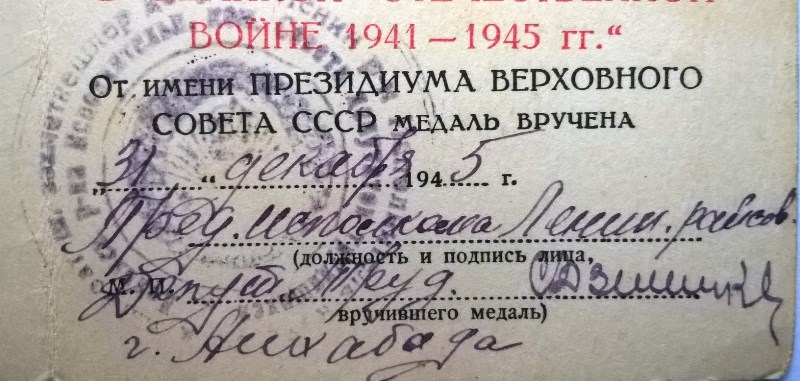 В ВЕЛИКОЙ ОТЕЧЕСТВЕННОЙ
ВОЙНЕ 1941—1945 гг.“
От имени ПРЕЗИДИУМА ВЕРХОВНОГО
СОВЕТА СССР МЕДАЛЬ ВРУЧЕНА
„31“ декабря 1945 г.
Пред. исполкома Ленин. райсов.
(должность и подпись лица,
М. П. Депут. Труд.
вручившего медаль)
г. Ашхабада